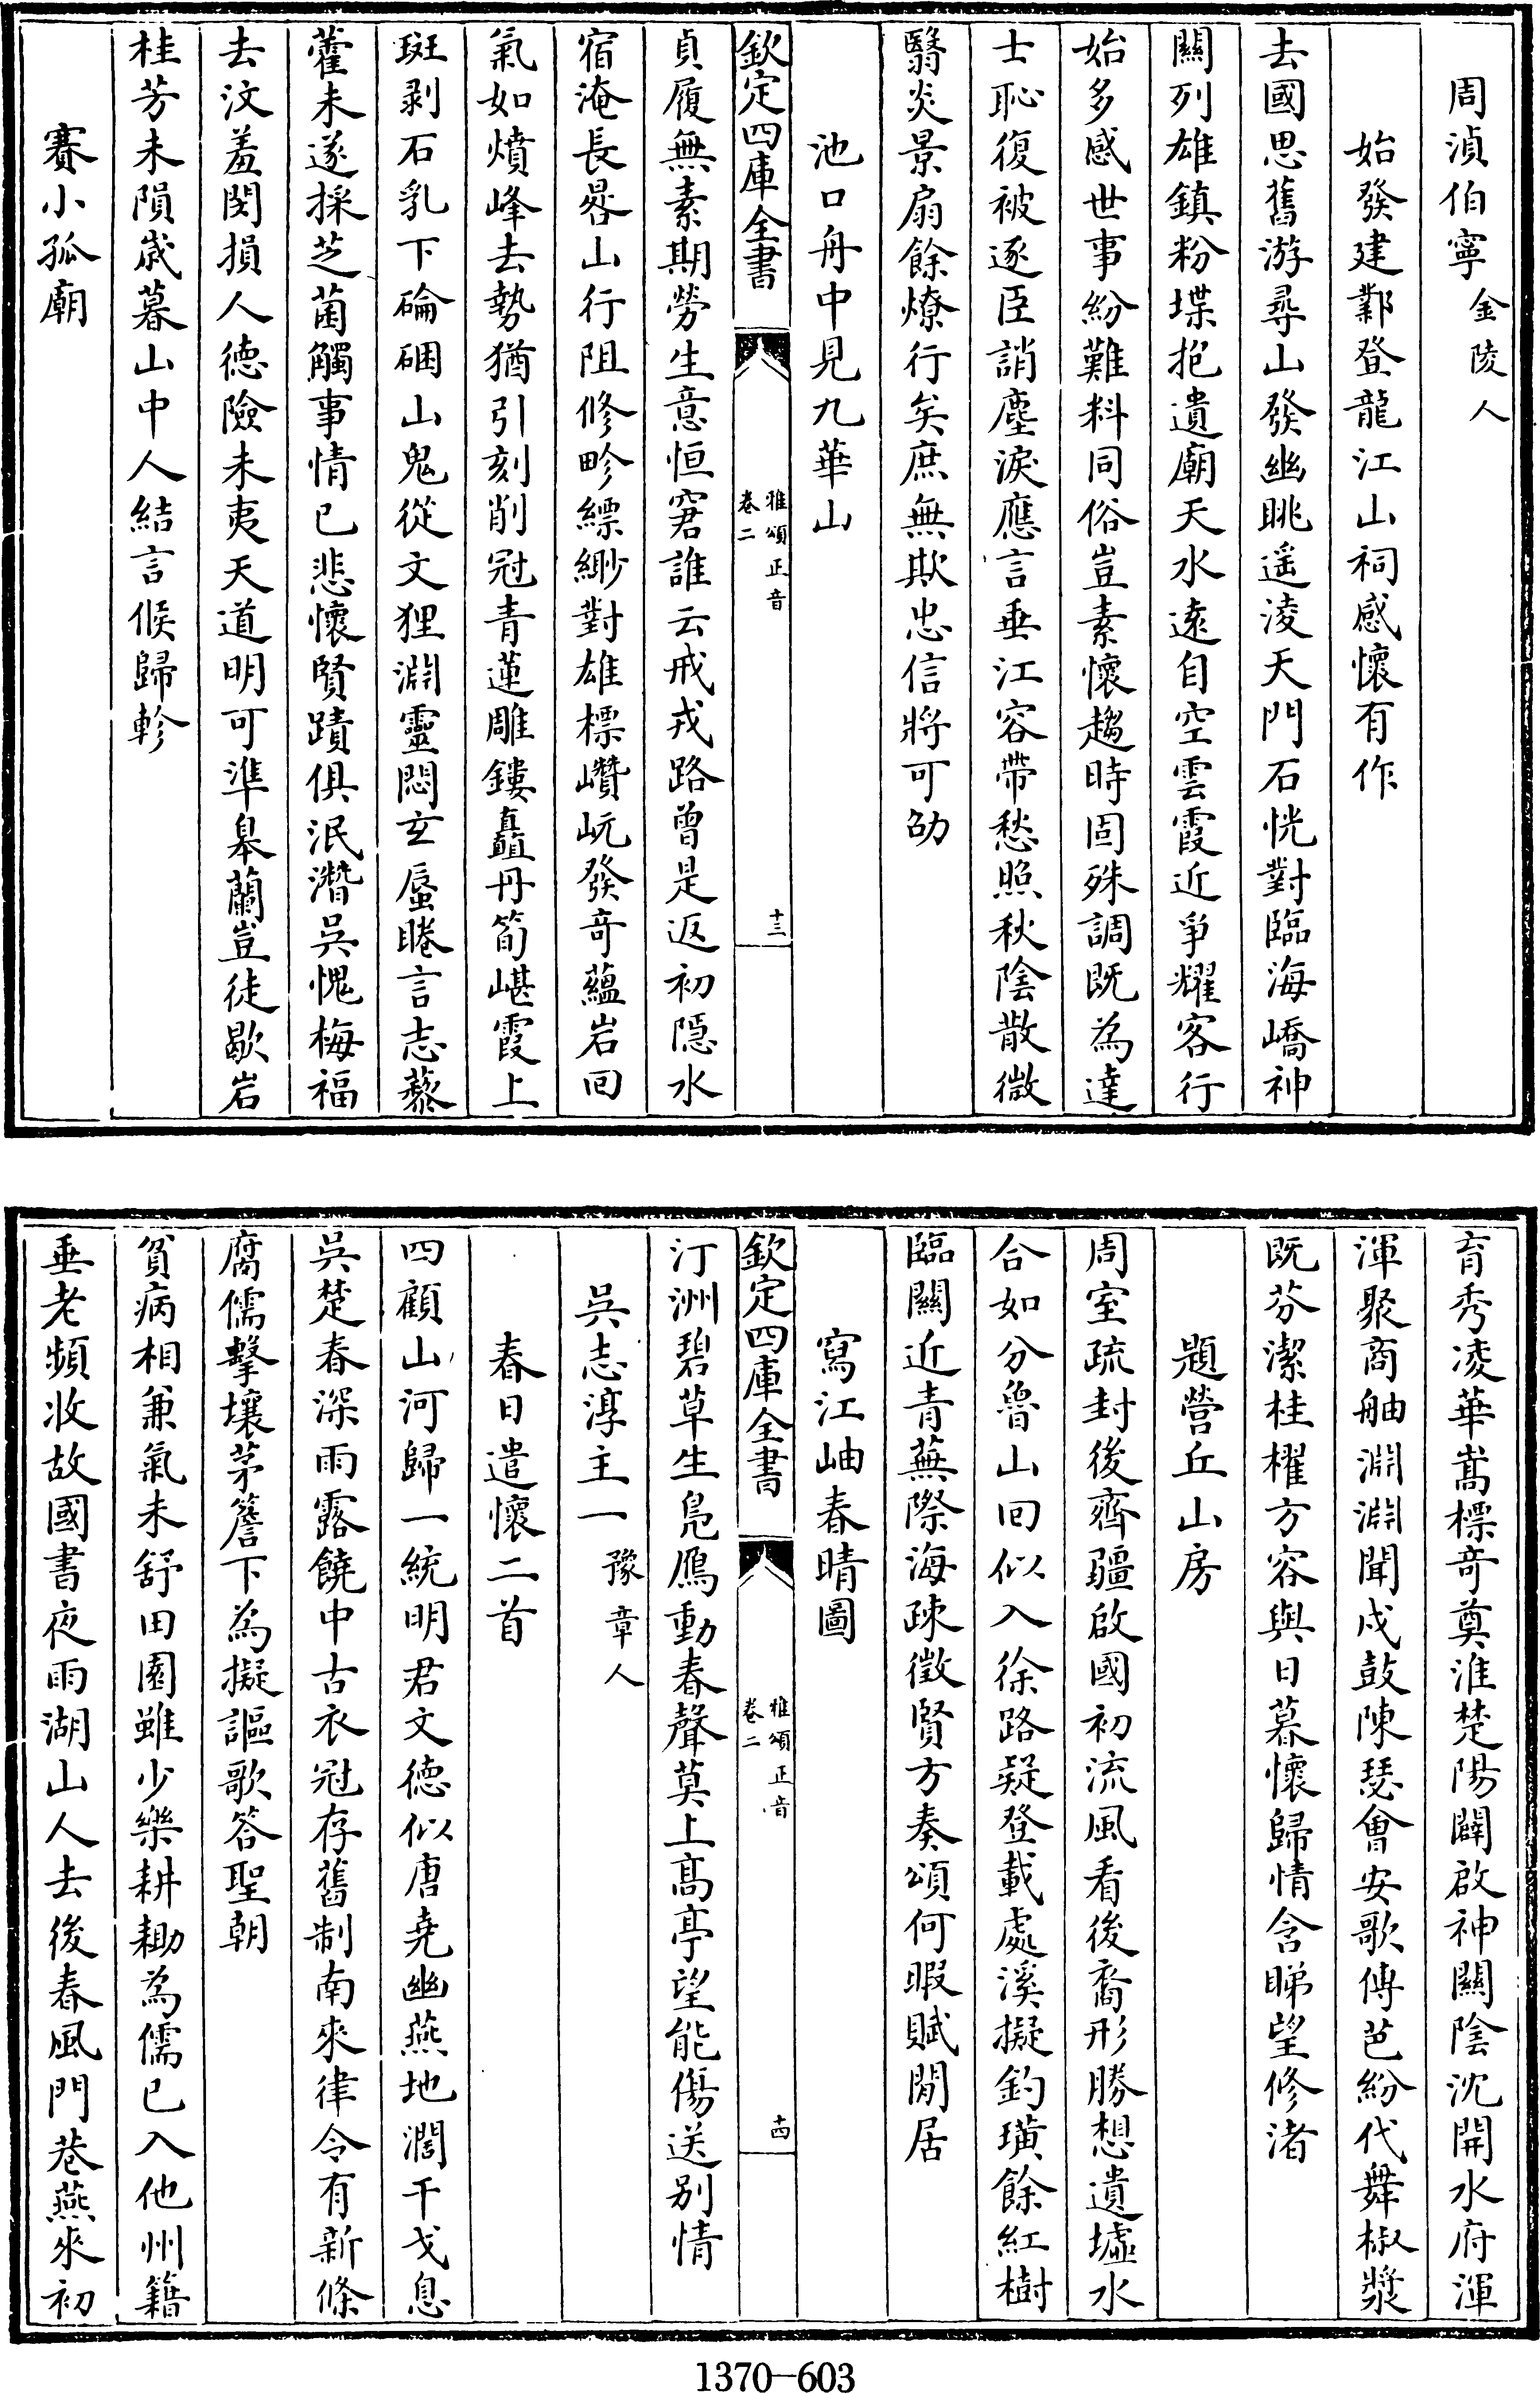 周湞伯寧金陵人
始發建鄴登龍江山祠感懷有作
去國思舊游尋山發幽眺遥淩天門石恍對臨海嶠神
關列雄鎮粉堞抱遺廟天水遠自空雲霞近爭耀客行
始多感世事紛難料同俗豈素懷趨時固殊調既為達
士恥復被逐臣誚塵淚應言垂江容帶愁照秋陰散微
翳炎景扇餘燎行矣庶無欺忠信將可劭
池口舟中見九華山
欽定四庫全書
雅頌正音
卷二
十三
貞履無素期勞生意恒窘誰云戒戎路曾是返初隱水
宿淹長晷山行阻修畛縹緲對雄標巑岏發奇蘊岩回
氣如憤峰去勢猶引刻削冠青蓮雕鏤矗丹筍嵁霞上
斑剥石乳下碖硱山鬼從文狸淵靈悶玄蜃睠言志藜
藿未遂採芝菌觸事情已悲懷賢蹟俱泯潛吳愧梅福
去汶羞閔損人德險未夷天道明可準皋蘭豈徒歇岩
桂芳未隕歲暮山中人結言候歸軫
賽小孤廟
育秀凌華嵩標奇奠淮楚陽闢啟神關陰沈開水府渾
渾聚商舳淵淵聞戍鼓陳瑟會安歌傳芭紛代舞椒漿
既芬潔桂櫂方容與日暮懷歸情含睇望修渚
題營丘山房
周室疏封後齊疆啟國初流風看後裔形勝想遺墟水
合如分魯山回似入徐路疑登載處溪擬釣璜餘紅樹
臨關近青蕪際海疎徵賢方奏頌何暇賦閒居
寫江岫春晴圖
欽定四庫全書
雅頌正音
卷二
十四
汀洲碧草生鳧鴈動春聲莫上髙亭望能傷送别情
吳志淳主一豫章人
春日遣懷二首
四顧山河歸一統明君文德似唐堯幽燕地濶干戈息
吳楚春深雨露饒中古衣冠存舊制南來律令有新條
腐儒擊壤茅簷下為擬謳歌答聖朝
貧病相兼氣未舒田園雖少樂耕耡為儒已入他州籍
垂老頻收故國書夜雨湖山人去後春風門巷燕來初
1370—603